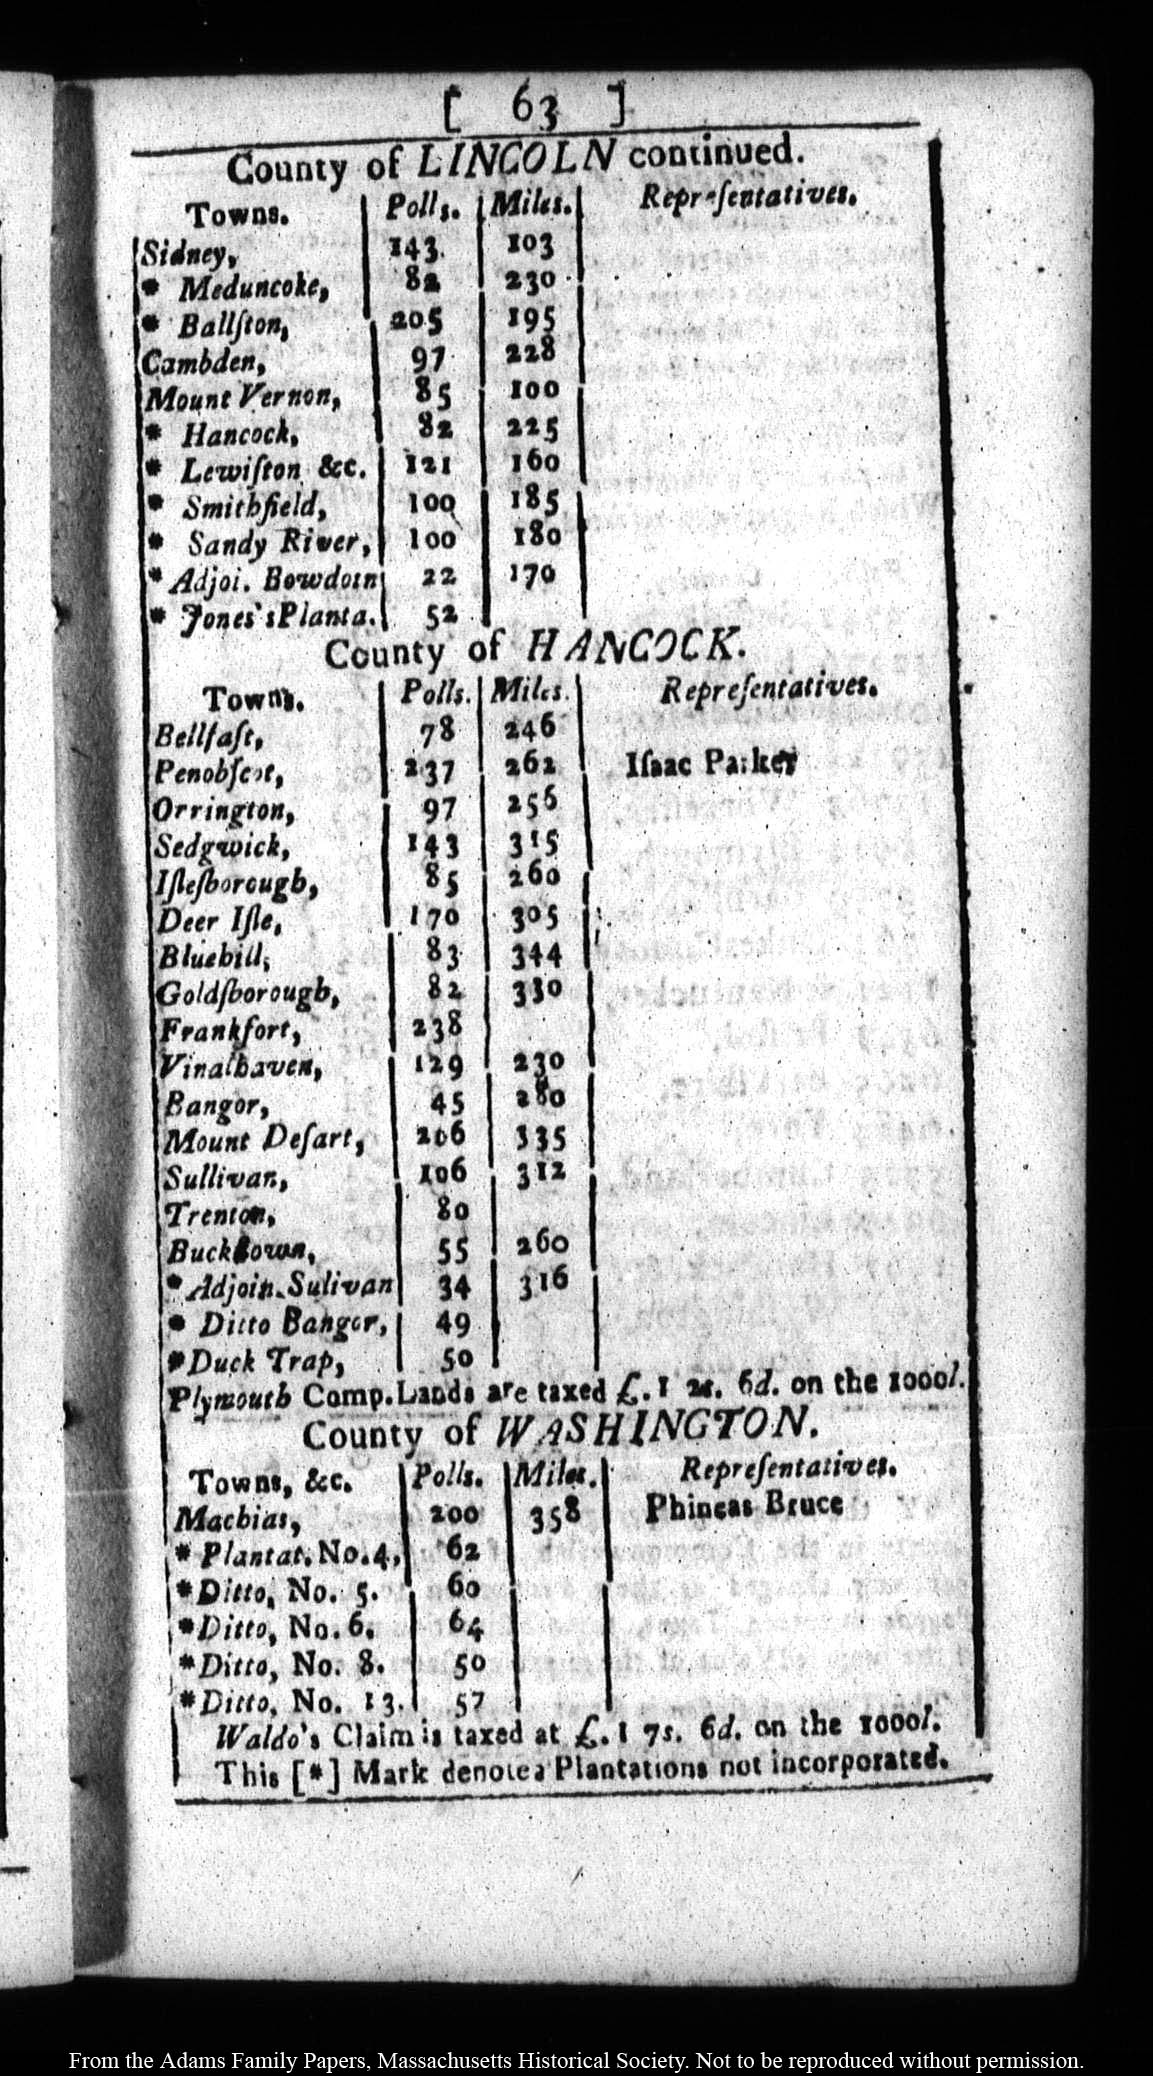 [ 63 ]
County of LINCOLN continued.
Towns. Polls. Miles. Repreſentatives.
Sidney, 143 103
* Meduncoke, 82 230
* Ballſton, 205 195
Cambden, 97 228
Mount Vernon, 85 100
* Hancock, 82 225
* Lewiſton &c. 121 160
* Smithfield, 100 185
* Sandy River, 100 180
* Adjoi. Bowdoin 22 170
* Jones's Planta. 52
County of HANCOCK.
Towns. Polls. Miles. Repreſentatives.
Bellfaſt, 78 246
Penobſcot, 237 262 Iſaac Parker
Orrington, 97 256
Sedgwick, 143 315
Iſleſborough, 85 260
Deer Iſle, 170 305
Bluehill, 83 344
Goldſborough, 82 330
Frankfort, 238
Vinalhaven, 129 230
Bangor, 45 280
Mount Deſart, 206 335
Sullivan, 106 312
Trenton, 80
Buckſtown, 55 260
* Adjoin. Sulivan 34 316
* Ditto Bangor, 49
* Duck Trap, 50
Plymouth Comp. Lands are taxed £.1 2s. 6d. on the 1000l.
County of WASHINGTON.
Towns, &c. Polls. Miles. Repreſentatives.
Machias, 200 358 Phineas Bruce
* Plantat. No. 4, 62
* Ditto, No. 5. 60
* Ditto, No. 6. 64
* Ditto, No. 8. 50
* Ditto, No. 13. 57
Waldo's Claim is taxed at £.1 7s. 6d. on the 1000l.
This [*] Mark denotes Plantations not incorporated.
From the Adams Family Papers, Massachusetts Historical Society. Not to be reproduced without permission.